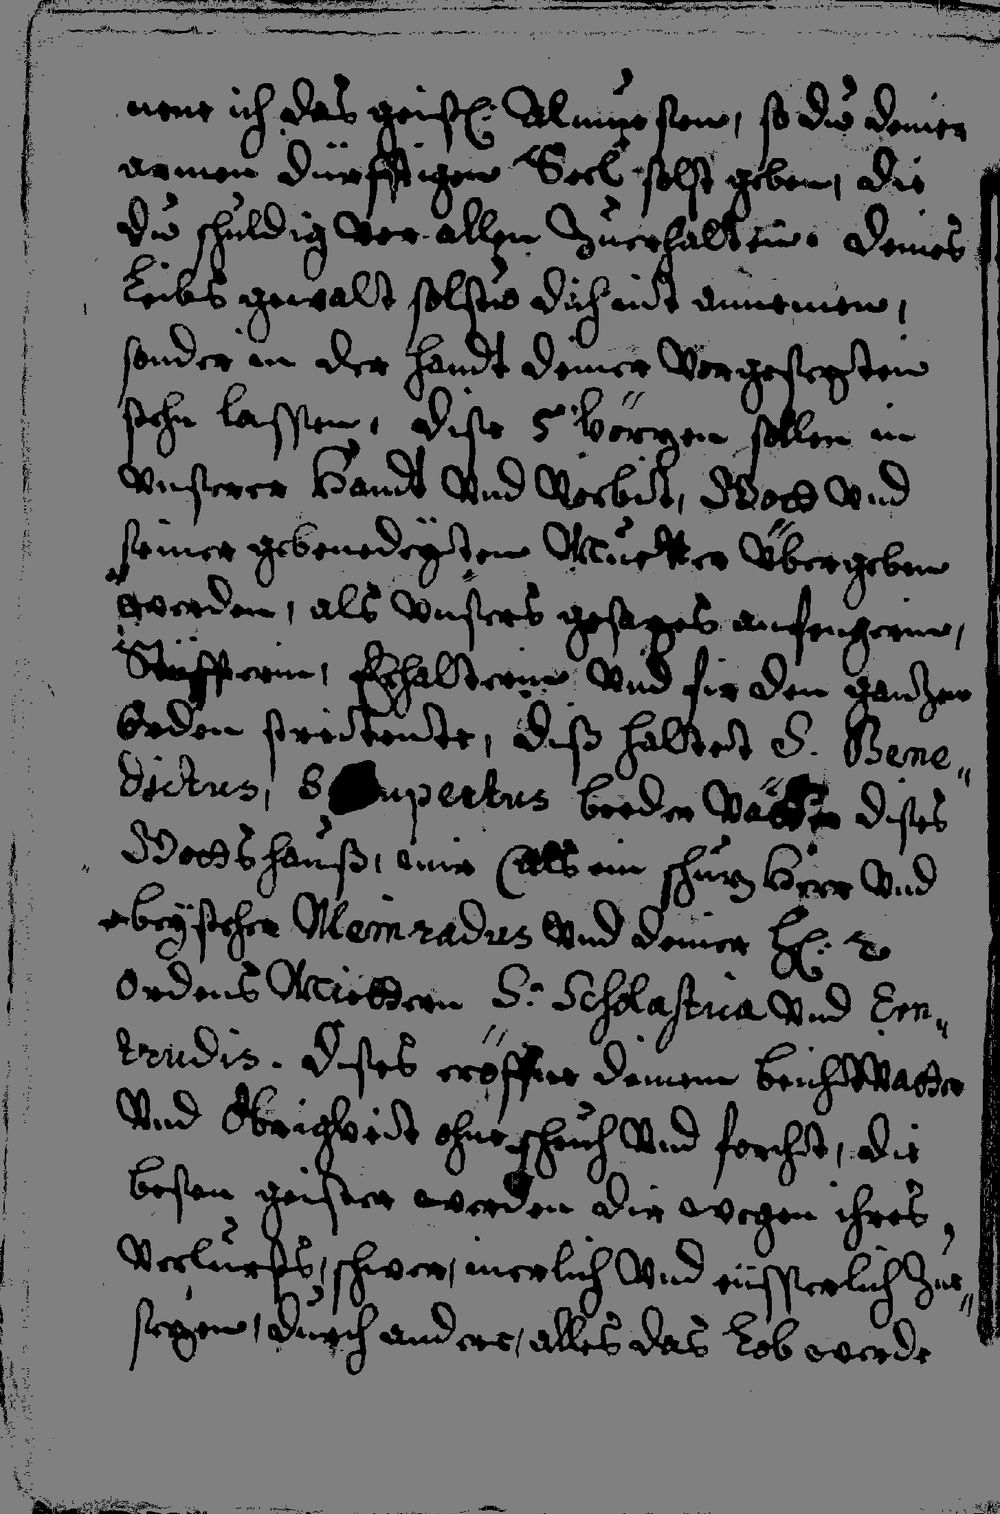 nene ich das geistl: Almuesen, so du deiner
armen dürfftigen Seel solst geben, die
du schuldig vor allen Zuerhalten. deines
Leibs gewalt solstu dich nit annemen,
sonder in der handt deiner Vorgesezten
stehn lassen, dise 5 börzen sollen in
vnserer Handt vnd Vorbit, Gott vnd
seiner gebenedeÿsten Muetter Vbergeben
werden, als vnsers gesazes anfengerin,
Stüffterin, Erhalterin vnd fir den ganzen
orden streitente, diß haltet S. Bene„
dictus, S upertus beeder Vätter dises
Gottshauß, wie (als ein schuz Herr vnd
beÿsteher Meinradus vnd deiner hl:
ordens Miettern S. Scholastica vnd Eren„
trudis. dises eröffne deinem beichtVatter
Vnd Obrigkeit ohne scheüch vnd forcht, die
besen geister werden dir wegen ihres
Verlursts, schwer, inerlich vnd eüsserlich Zue„
sezen, durch andere, alles das Lob werde